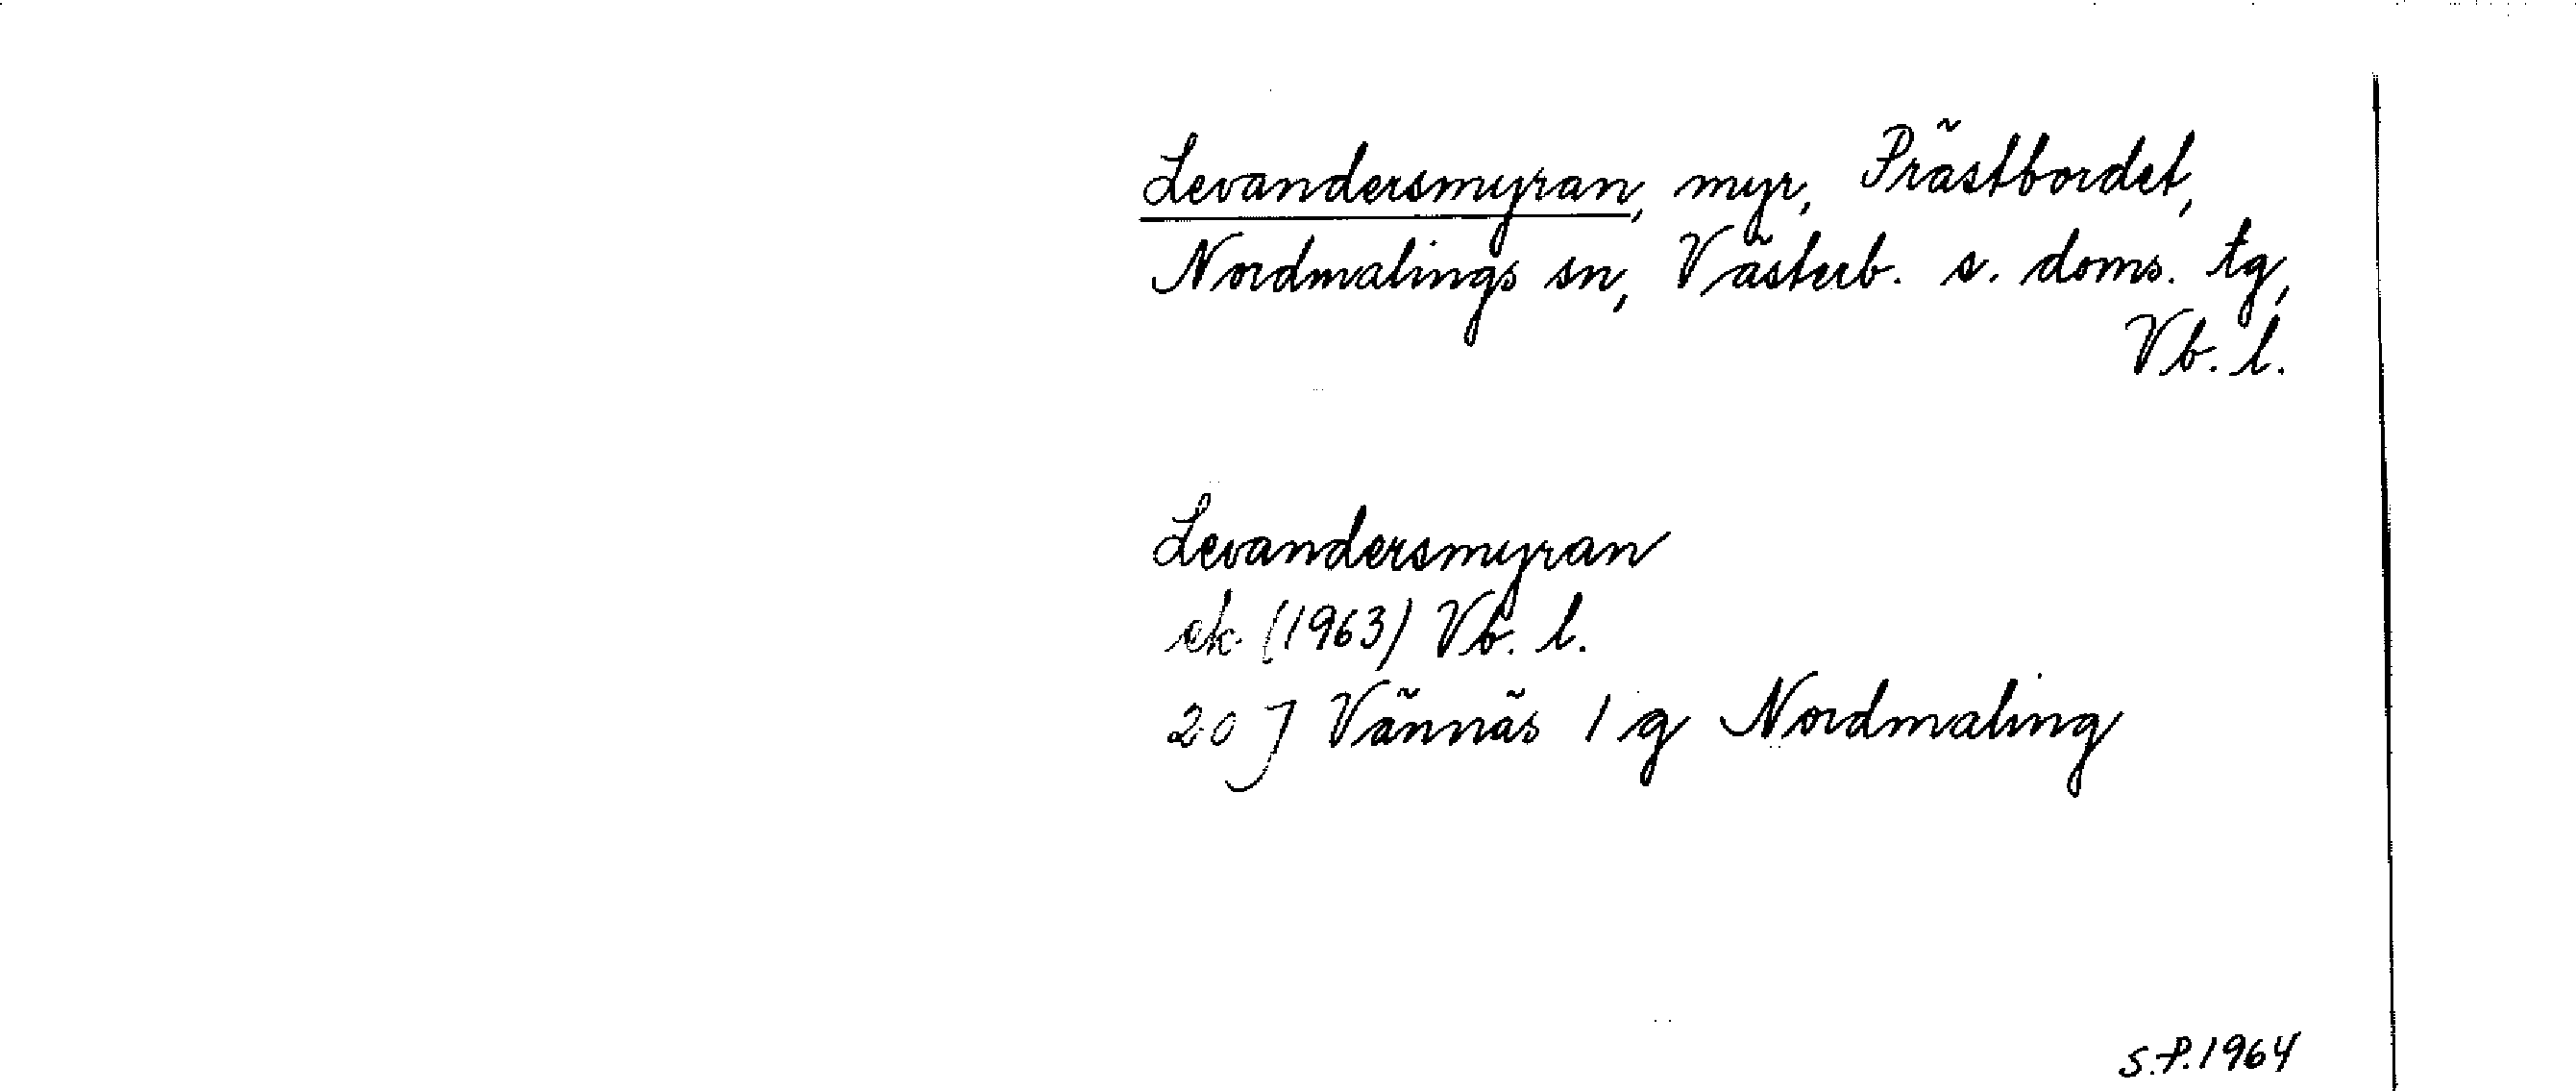 Levandersmyran, myr, Prästbordet,
Nordmalings sn, Västerb. s. doms. tg,
Vb. l.
Levandersmyran
ek (1963) Vb. l.
20 J Vännäs 1 g Nordmaling
S.P. 1964